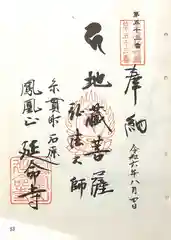 第五十三番
奉納
令和六年八月四日
地蔵菩薩
弘法大師
糸貫町石原
鳳凰山
延命寺
53